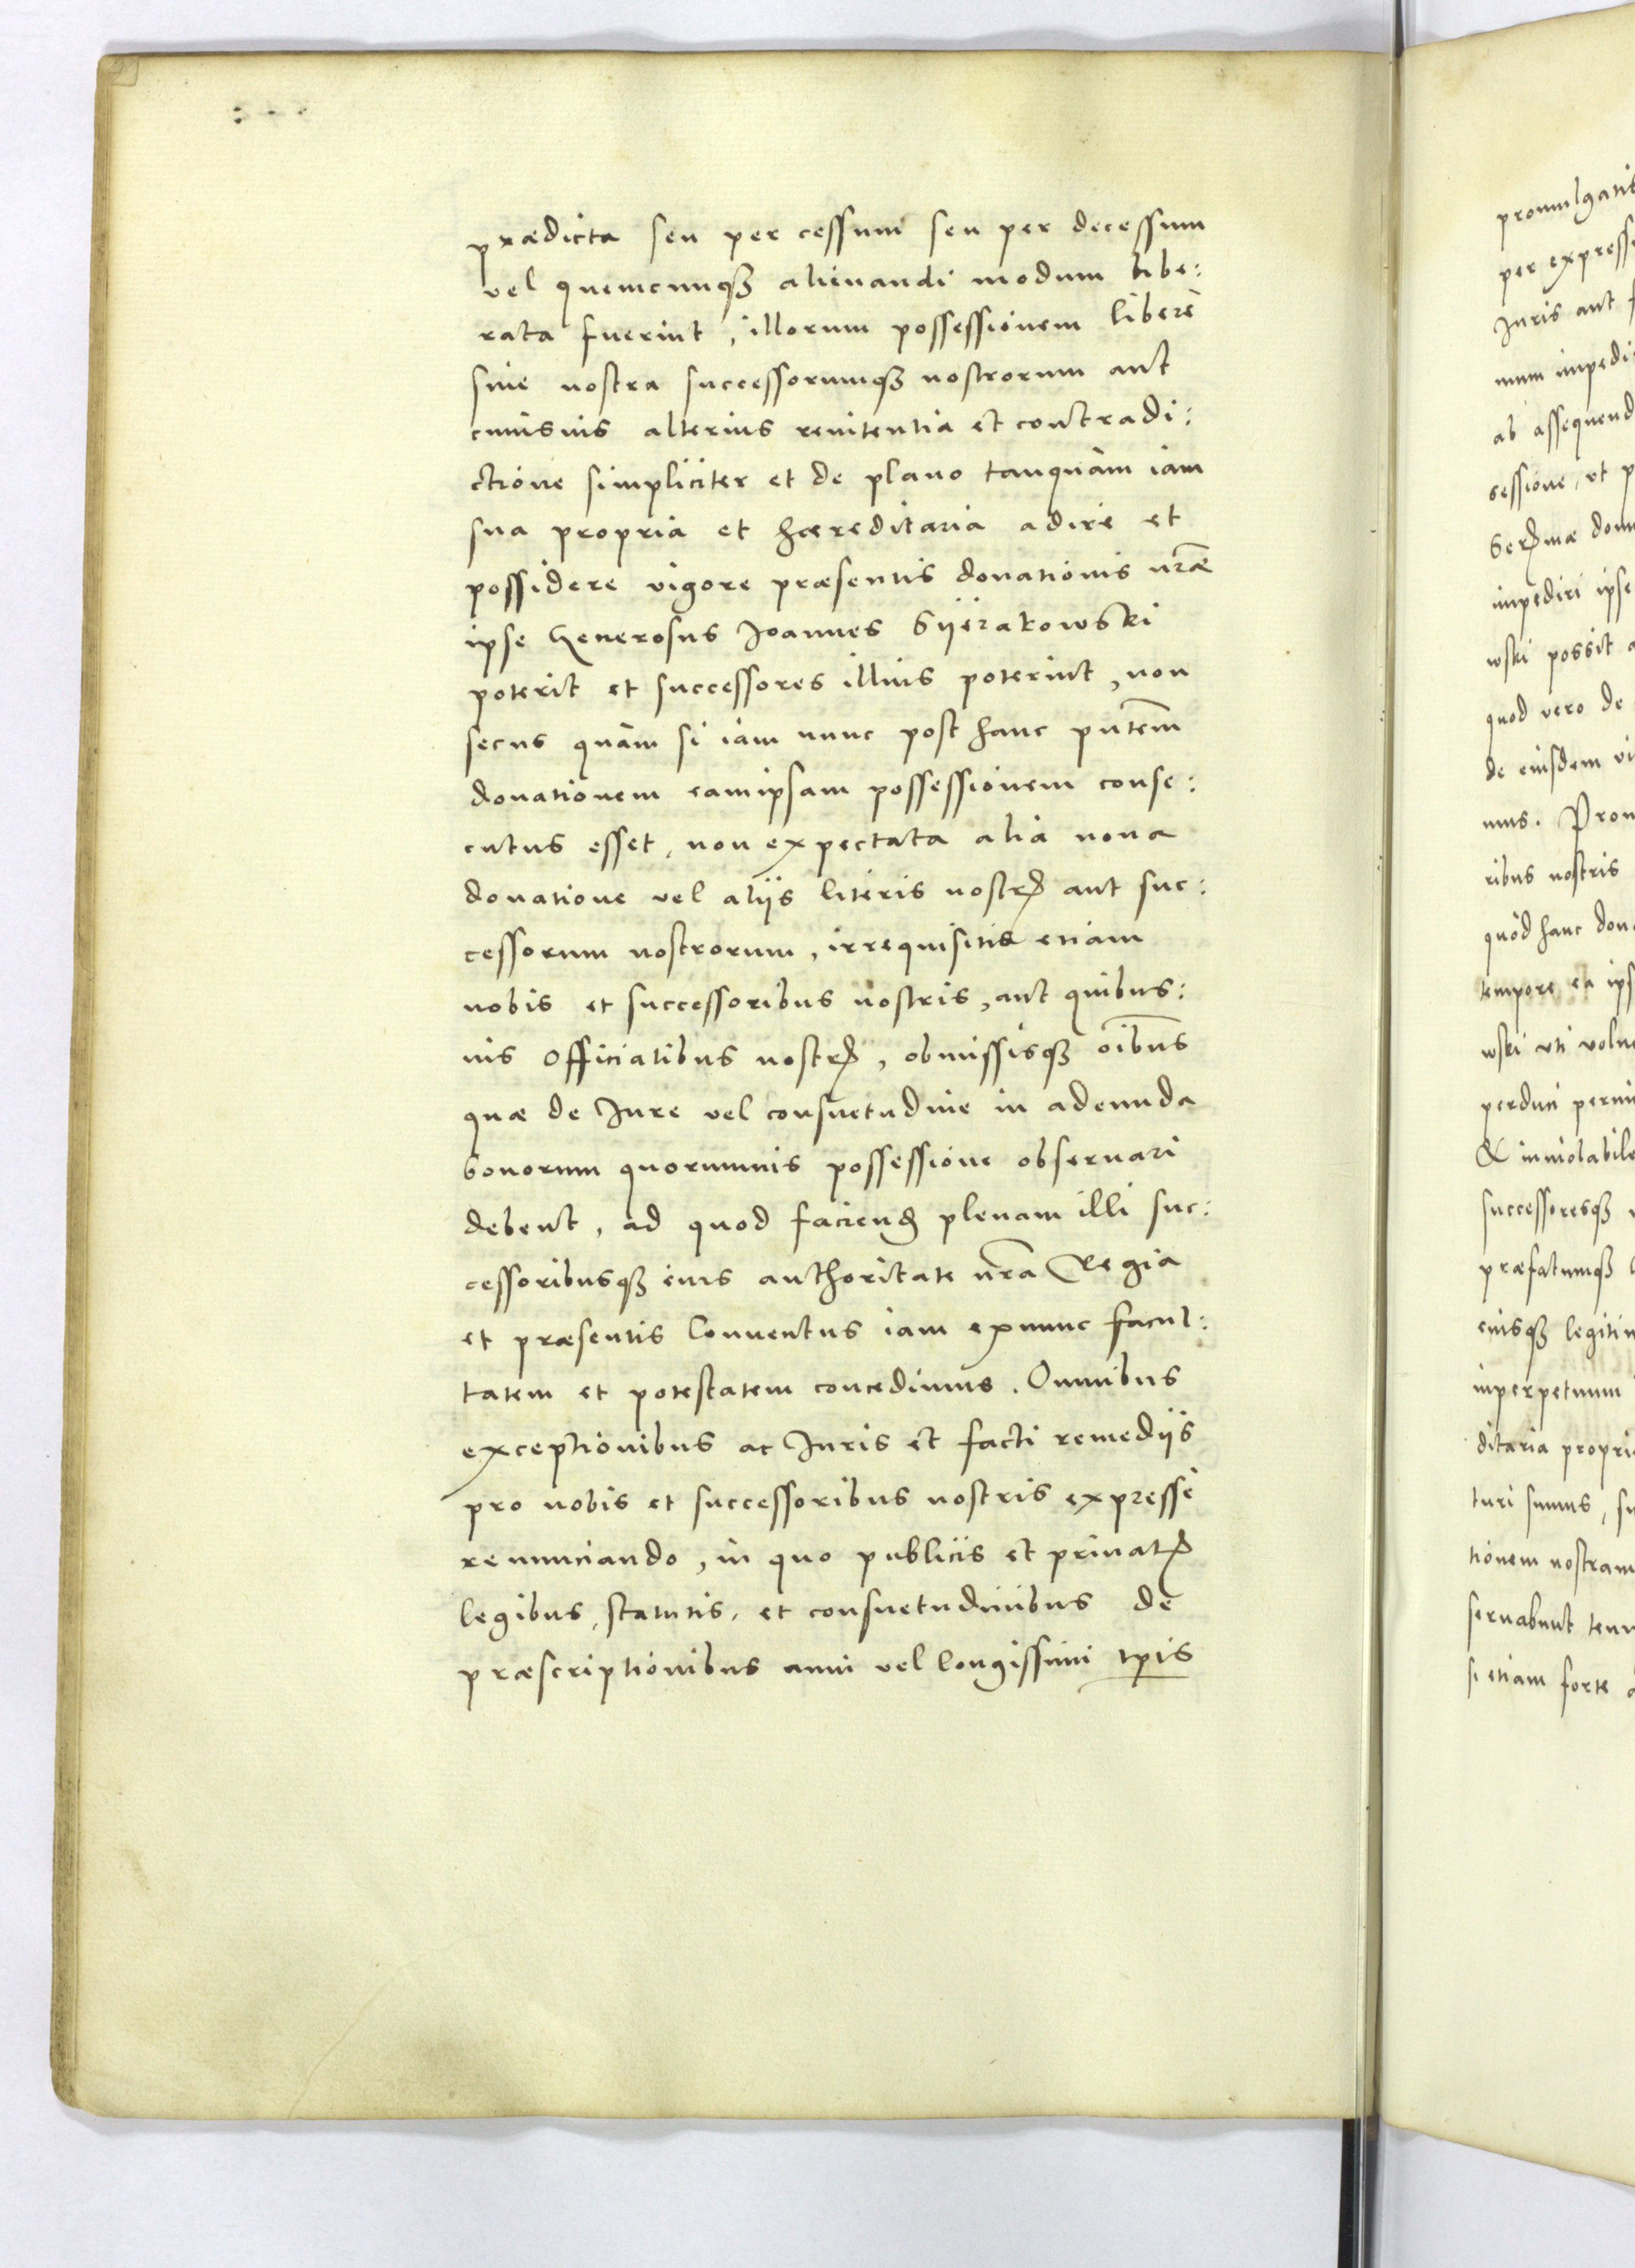 prædicta seu per cessum seu per decessum
vel quemcunq3 alienandi modum libe:
rata fuerint, illorum possessionem liberè
sine nostra successorumq3 nostrorum aut
cuiusuis alterius renitentia et contradi:
ctione simpliciter et de plano tanquàm iam
sua propria et hæreditaria adire et
possidere vigore præsentis donationis nr̃æ
ipse Generosus Joannes Syerakowski
poterit et successores illius poterint, non
secus quàm si iam nunc post hanc pñtem
donationem eamipsam possessionem conse:
cutus esset, non expectata alia noua
donatione vel alijs literis nostrꝭ aut suc:
cessorum nostrorum, irrequisitis etiam
nobis et successoribus nostris, aut quibus:
uis officialibus nostrꝭ, obmissisq3 oĩbus
quæ de Jure vel consuetudine in adeunda
bonorum quorumuis possessione obseruari
debent, ad quod faciendꝭ plenam illi suc:
cessoribusq3 eius authoritate nr̃a Regia
et præsentis Conuentus iam exnunc facul:
tatem et potestatem concedimus. Omnibus
exceptionibus ac Juris et facti remedijs
pro nobis et successoribus nostris expressè
renunciando, in quo publicis et priuatꝭ
legibus, statutis, et consuetudinibus de
præscriptionibus anni vel longissimi tp̱is
promulgatis
per express
Juris aut f
mum impedi
ab assequend
sessione, vt p
Serꝭmæ dom
impediri ipse
wski possit a
quod vero de
de eiusdem vi
mus. Prom
ribus nostris
quòd hanc dona
tempore ea ips
wski vti volu
perduci permi
& inuiolabile
successoresq3
præfatumq3 G
eiusq3 legitim
inperpetuum
ditaria propri
turi sumus, su
tionem nostram
seruabunt
si etiam forte